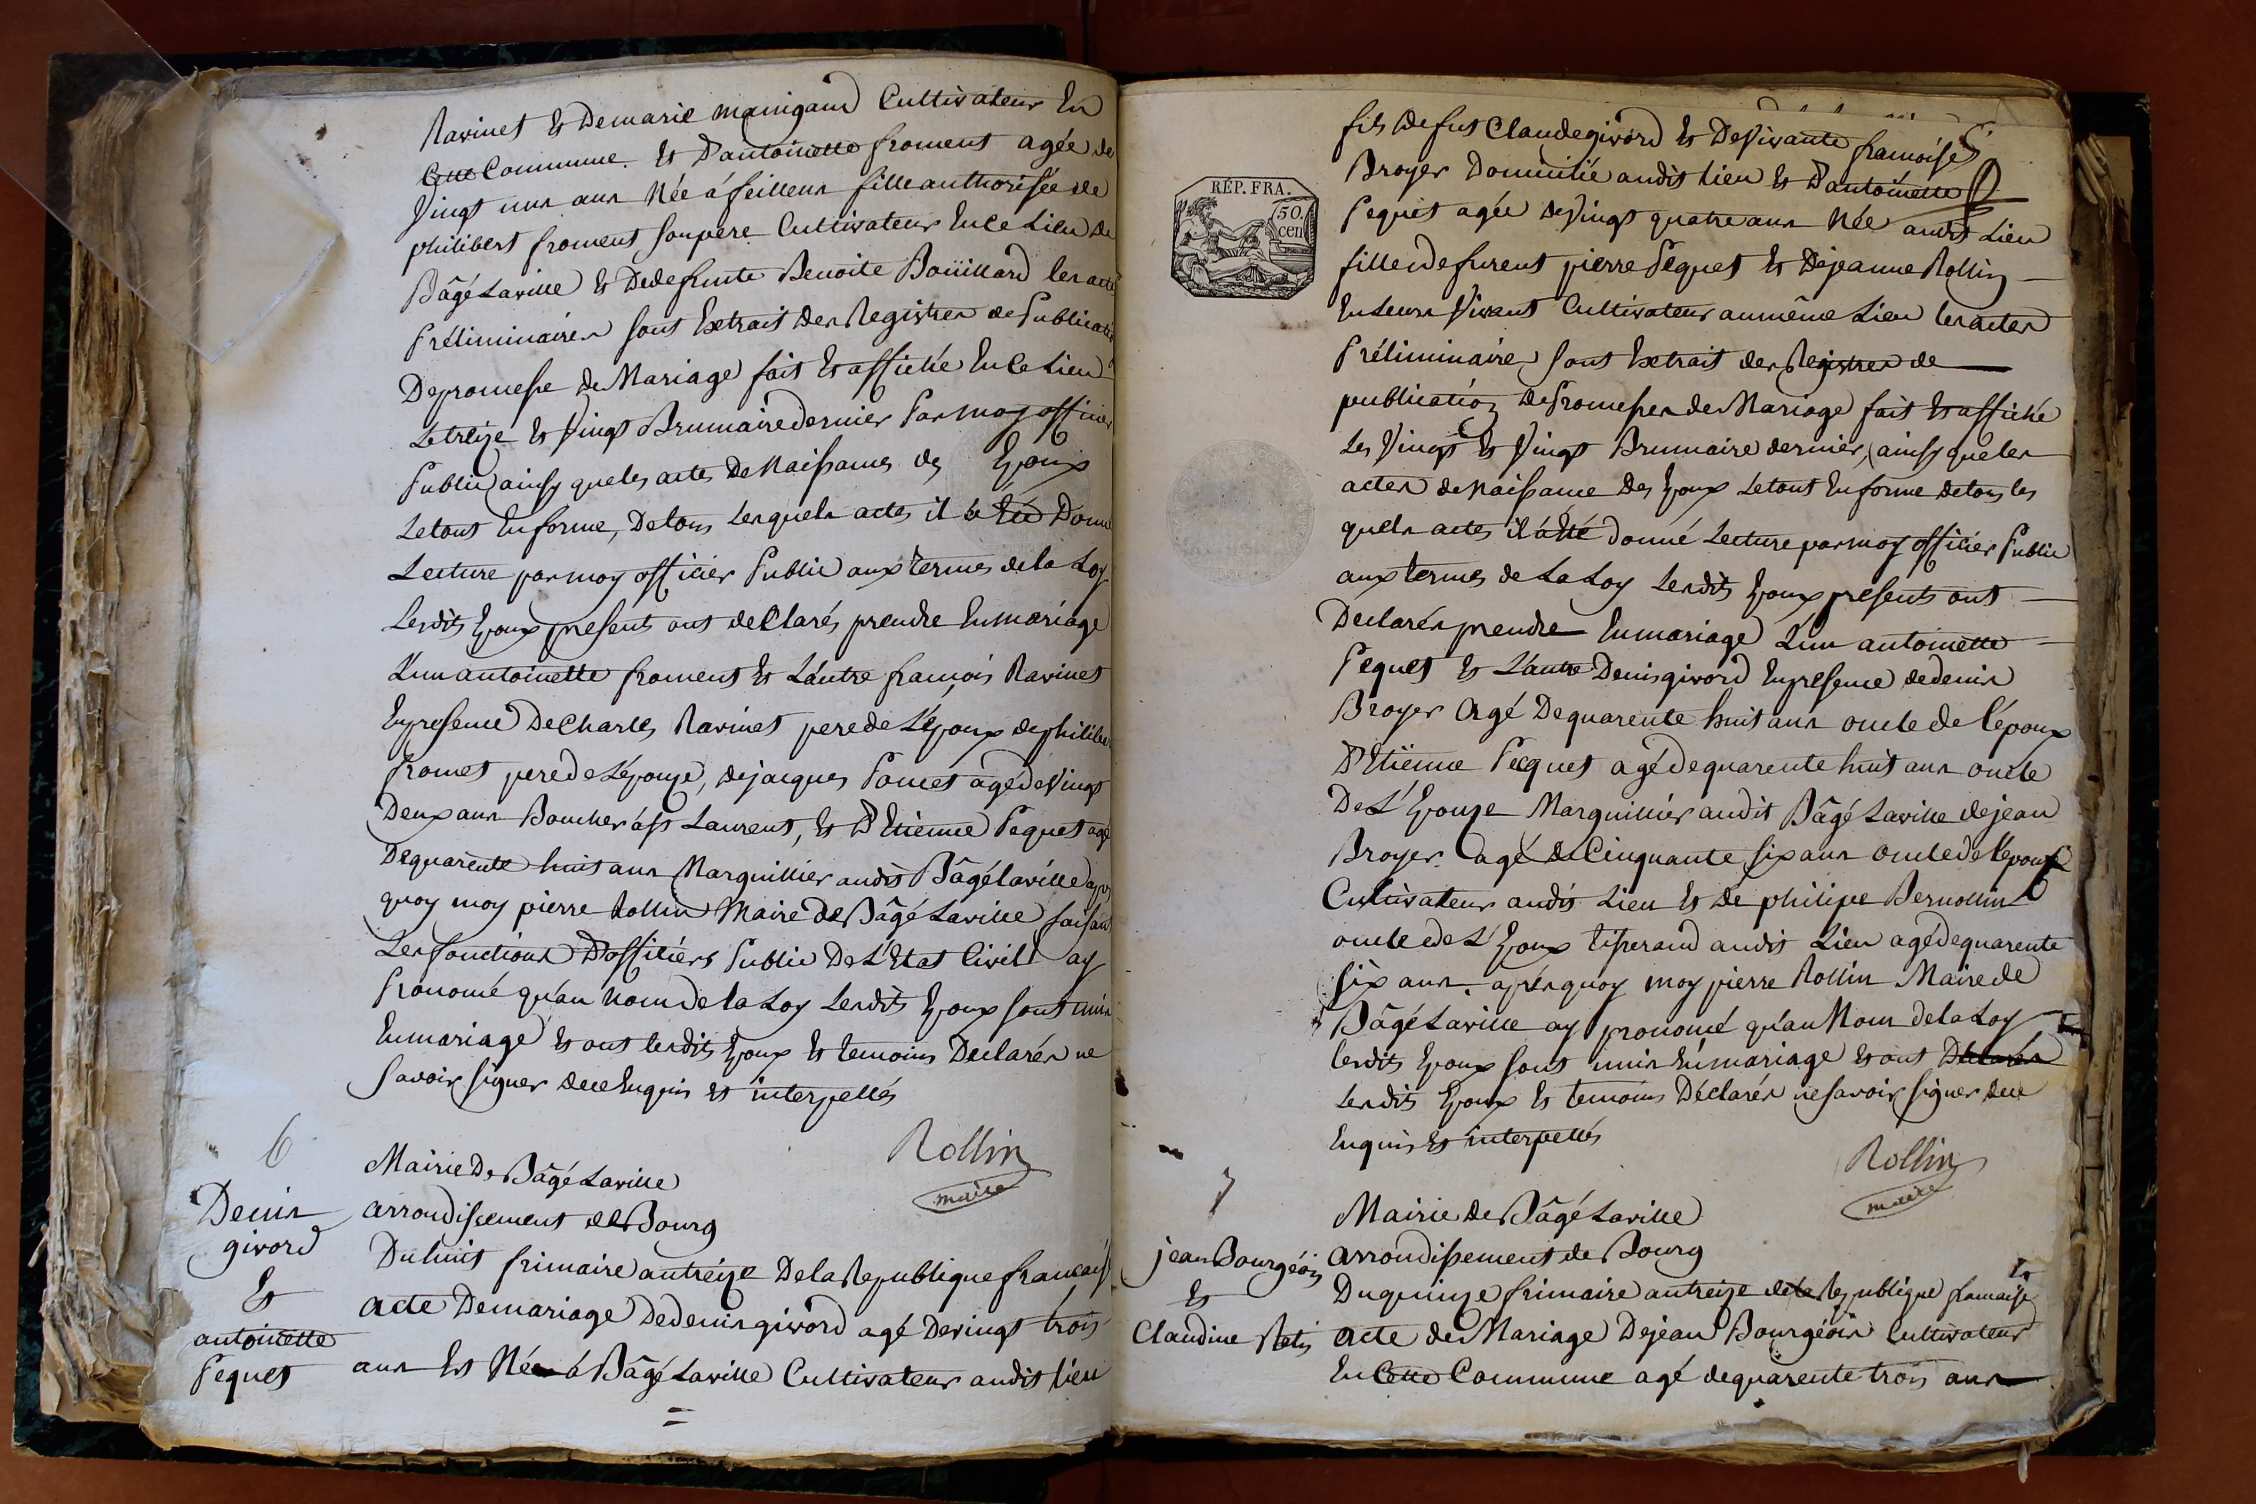 Ravinet Et Demarie mangaud Cultivateur En
Cette Commune. Et D'antoinette froment agée de
Vingt un ans Née á feillens fille authorisée de
philibert froment son pere Cultivateur En Ce Lieu De
Bâgé Laville Et De defunte Benoite Boüillard les actes
Préliminaires sont Extrait Des Registres de Publication
De promesse de Mariage fait Et affiché En Ce Lieu
Le treize Et Vingt Brumaire dernier Par moy officier
Public ainsy que les actes De Naissances des Epoux
Le tout En forme, De tous Lesquels actes il á Eté Donné
Lecture par moy officier Public aux termes de la Loy
Lesdits Epoux présents ont declarés prendre En mariage
L'un antoinette froment Et L'autre françois Ravinet
En presence De Charles Ravinet pere de L'Epoux de philibert
fromet pere de L'épouze, de jacques Poncet agé de Vingt
Deux ans Boucher á St Laurent, Et D'Etienne Pequet agé
De quarente huit ans Marguillier audit Bâgé Laville apres
quoy moy pierre Rollin Maire De Bâgé Laville faisant
Les fonctions D'officiers Public De L'Etat Civil ay
Prononcé qu'au Nom de la Loy Lesdits Epoux sont unis
En mariage Et ont lesdits Epoux Et temoins Declarés ne
Savoir signer de ce Enquis Et interpellés
Rollin
maire
6
Denis
givord
Et
antoinette
Pequet
Mairie De Bâgé Laville
arrondissement de Bourg
Du huit frimaire an treize De la Republique francaise
acte De mariage De denis givord agé De vingt trois
ans Et Né á Bâgé Laville Cultivateur audit lieu
RÉP. FRA.
50.
cen
fils de fut Claude givord Et De Vivante françoise
Broyer Domicilié audit Lieu Et D'antoinette
Pequet agée de Vingt quatre ans Née audit Lieu
fille de furent pierre Pequet Et De jeanne Rollin
En Leurs Vivant Cultivateur au même Lieu les actes
Préliminaire sont Extrait des Registres de
publication de Promesses de Mariage fait Et affiché
Les Vingt Et Vingt Brumaire dernier, ainsy que les
actes de Naissance Des Epoux Le tout En forme de tous les
quels actes il á Eté donné Lecture par moy officier Public
aux termes de La Loy Lesdits Epoux presents ont
Declarés prendre En mariage L'un antoinette
Pequet Et L'autre Denis givord En presence de denis
Broyer Agé De quarente huit ans oncle de l'époux
D'Etienne Pecquet agé de quarente huit ans oncle
De L'Epouze Marguillier audit Bâgé Laville de jean
Broyer agé de Cinquante six ans oncle de l'Epoux
Cultivateur audit Lieu Et De philipe Bernollin
oncle de L'Epoux tisserand audit Lieu agé de quarente
six ans. aprés quoy moy pierre Rollin Maire de
Bâgé Laville ay prononcé qu'au Nom de la Loy
lesdits Epoux sont unis En mariage Et ont Declarés
Lesdits Epoux Et temoins Déclarés ne savoir signer de ce
Enquis Et interpellés
Rollin
maire
7
jean Bourgéois
Et
Claudine
Mairie de Bâgé Laville
arrondissement de Bourg
Du quinze frimaire an treize de la Republique francaise
acte de Mariage De jean Bourgéois Cultivateur
En Cette Commune agé de quarente trois ans